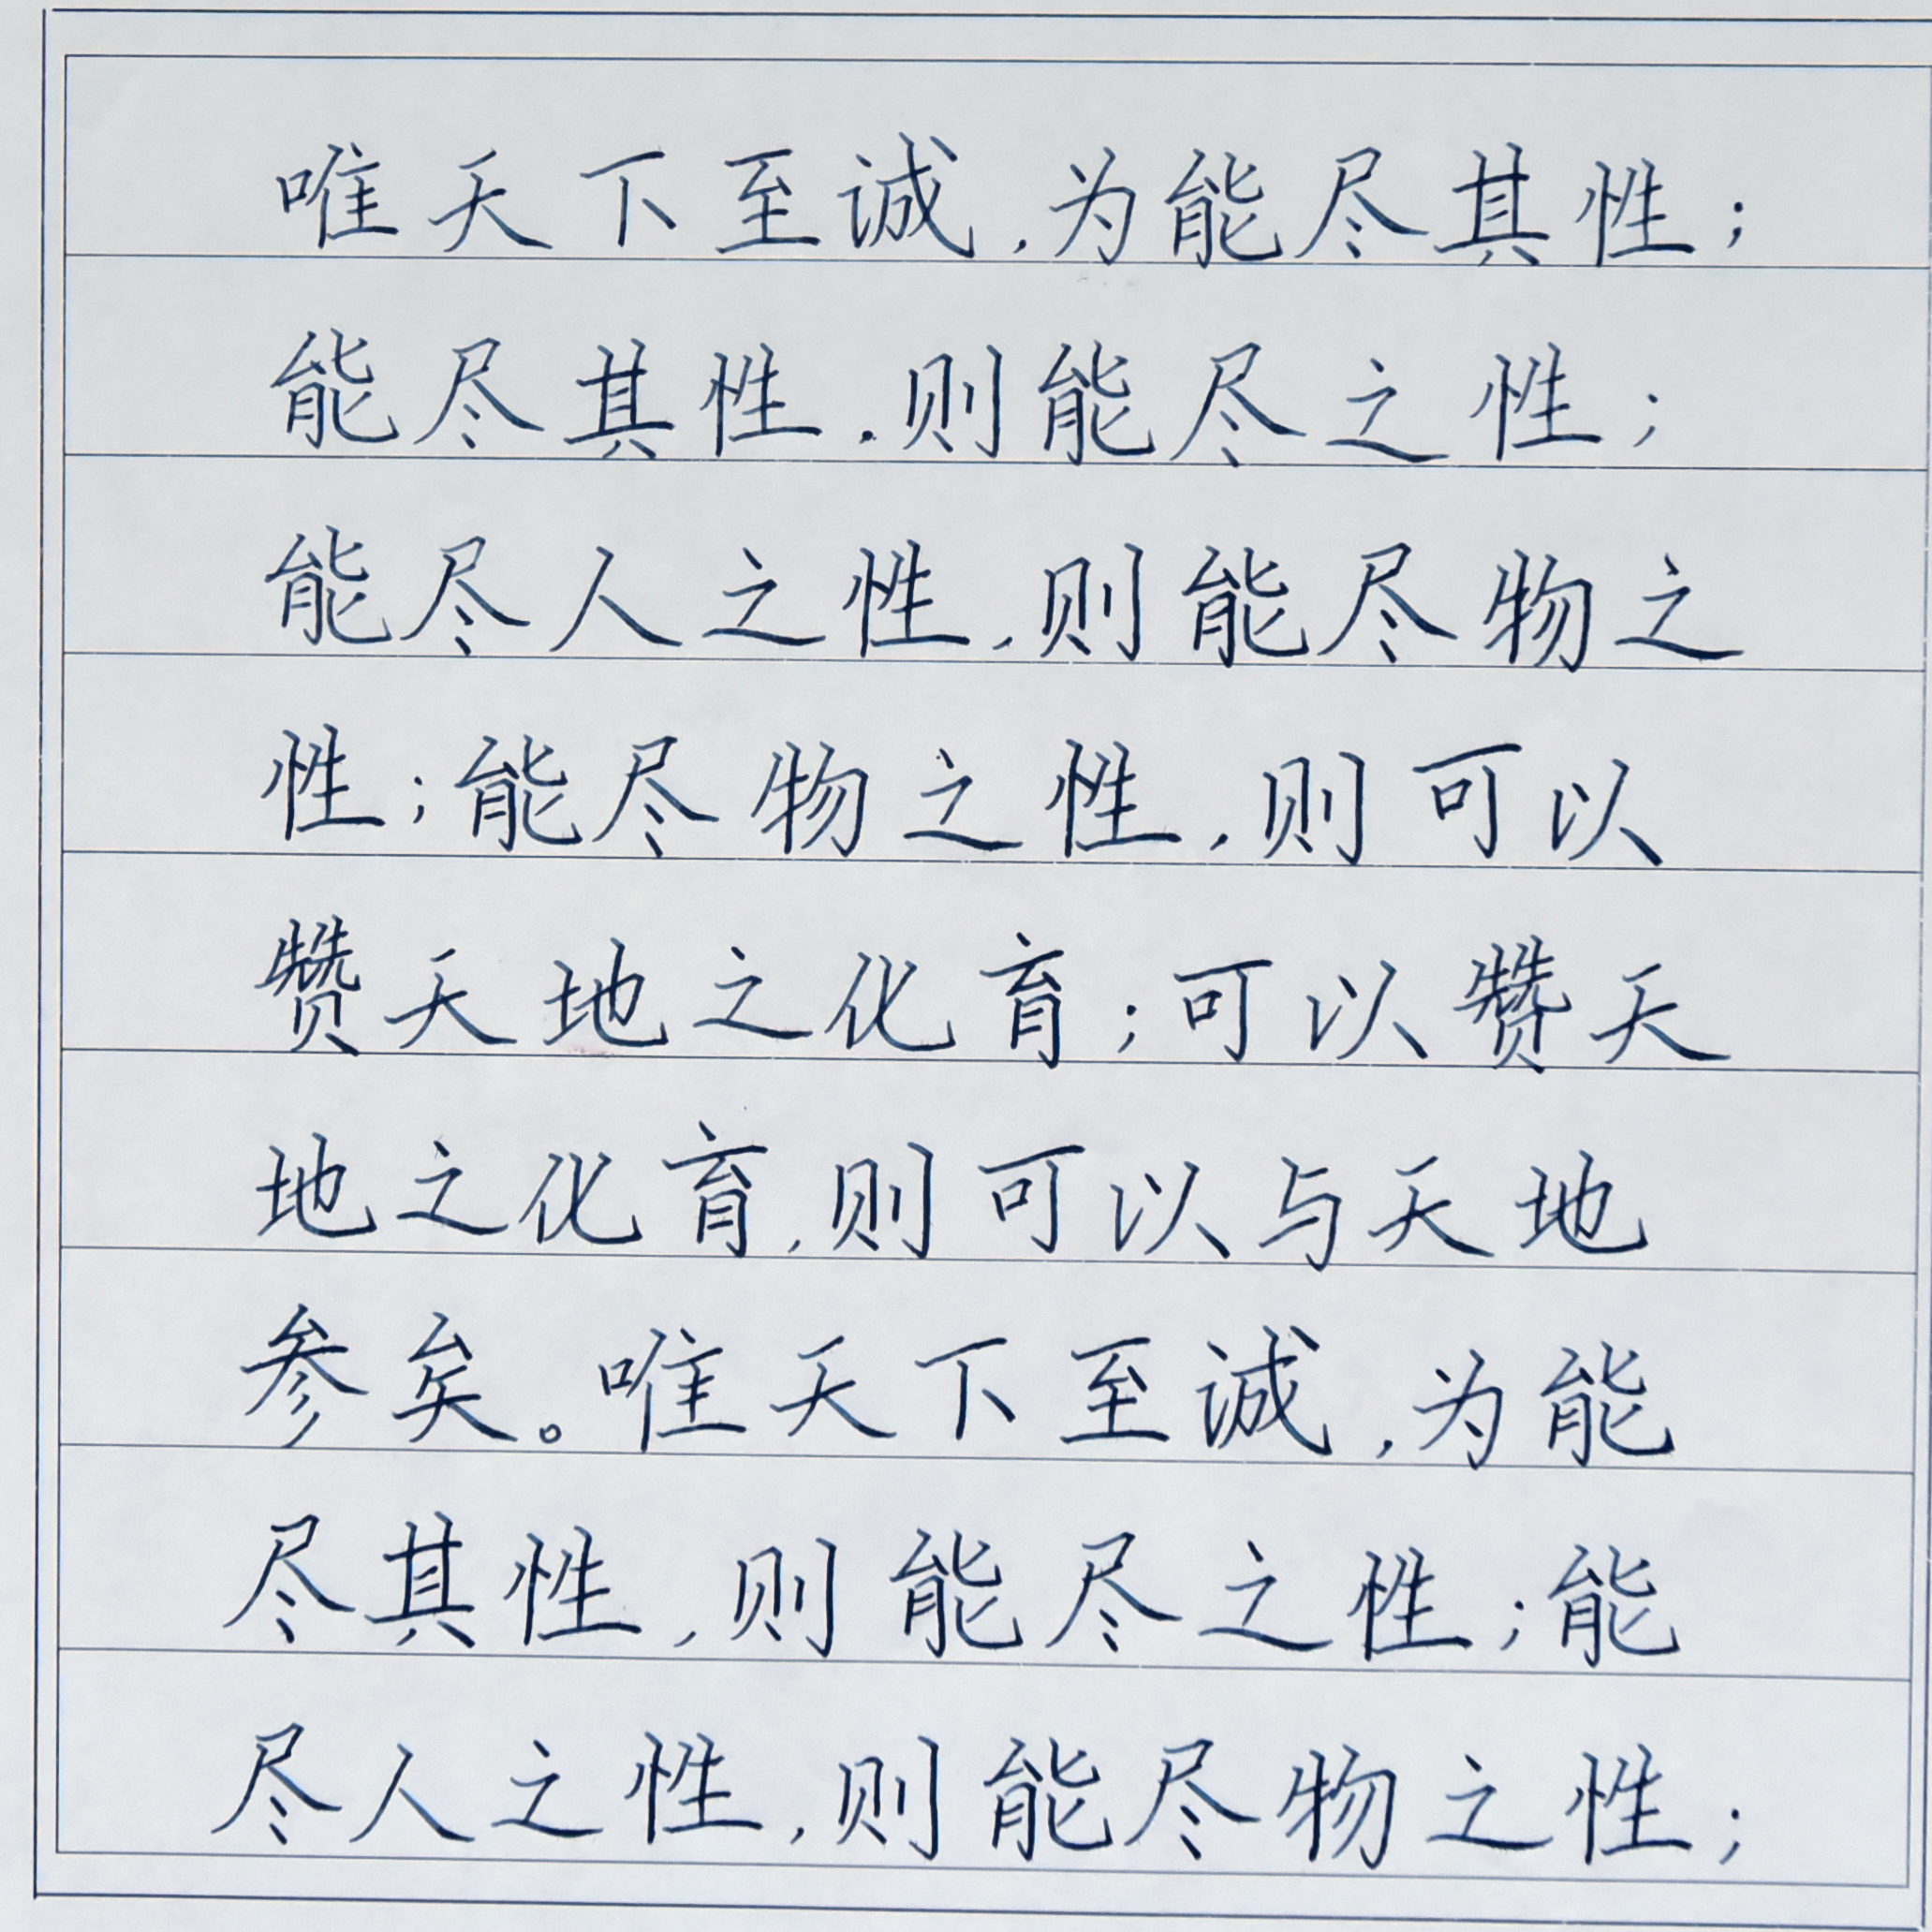 唯天下至诚,为能尽其性;
能尽其性.则能尽之性;
能尽人之性,则能尽物之
性;能尽物之性,则可以
赞天地之化育;可以赞天
地之化育,则可以与天地
参矣。唯天下至诚,为能
尽其性,则能尽之性;能
尽人之性,则能尽物之性;